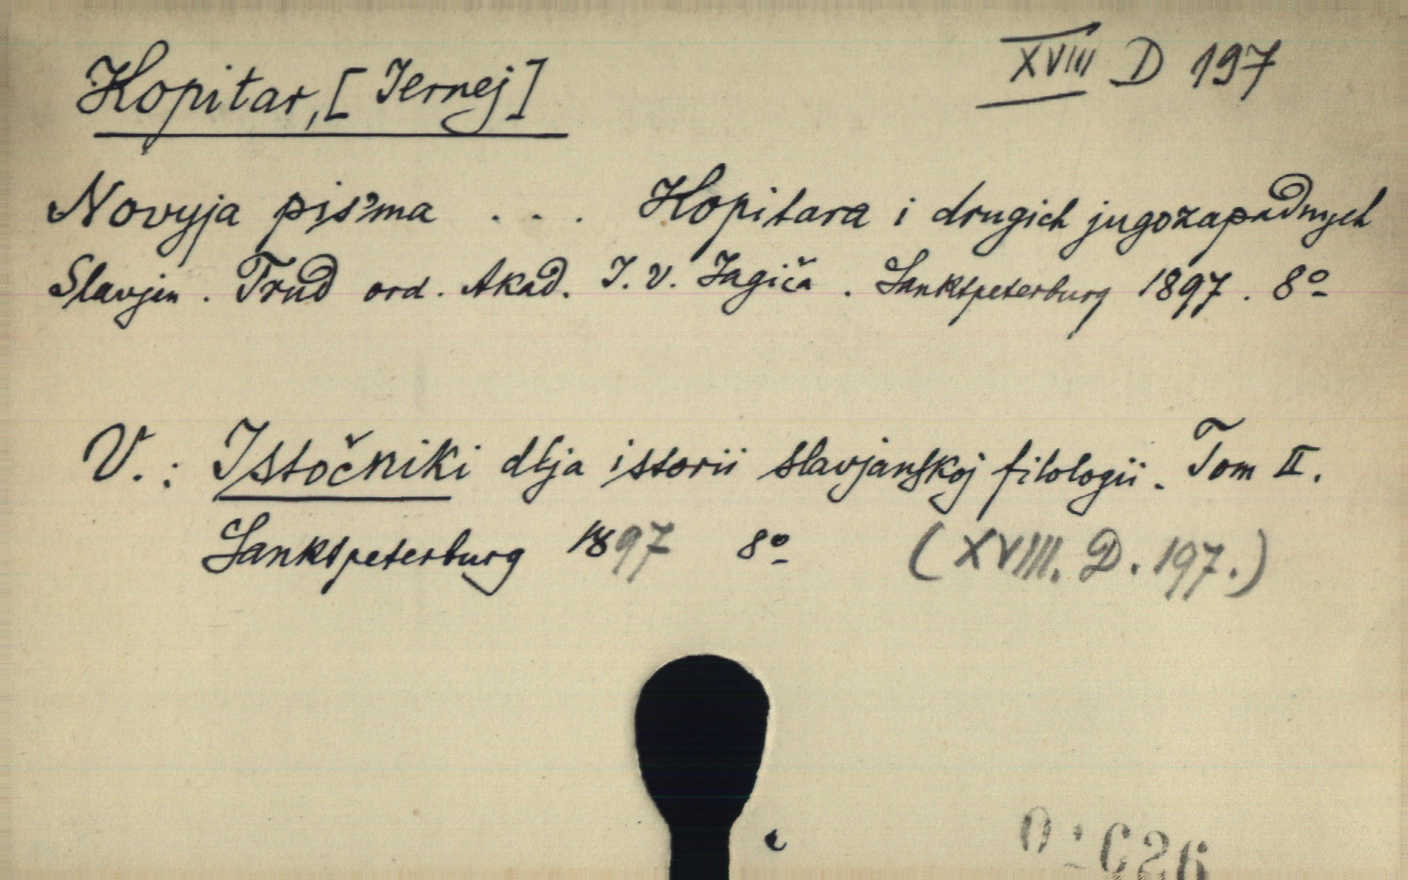 Kopitar, [Jernej] XVIII D 197
Novyja pis'ma . . . Kopitara i drugich jugozapadnych
Slavjan. Trud ord. Akad. I. V. Jagiča. Sanktpeterburg 1897. 8º
V.: Istočniki dlja istorii slavjanskoj filologii. Tom II.
Sanktpeterburg 1897 8º (XVIII. D. 197.)